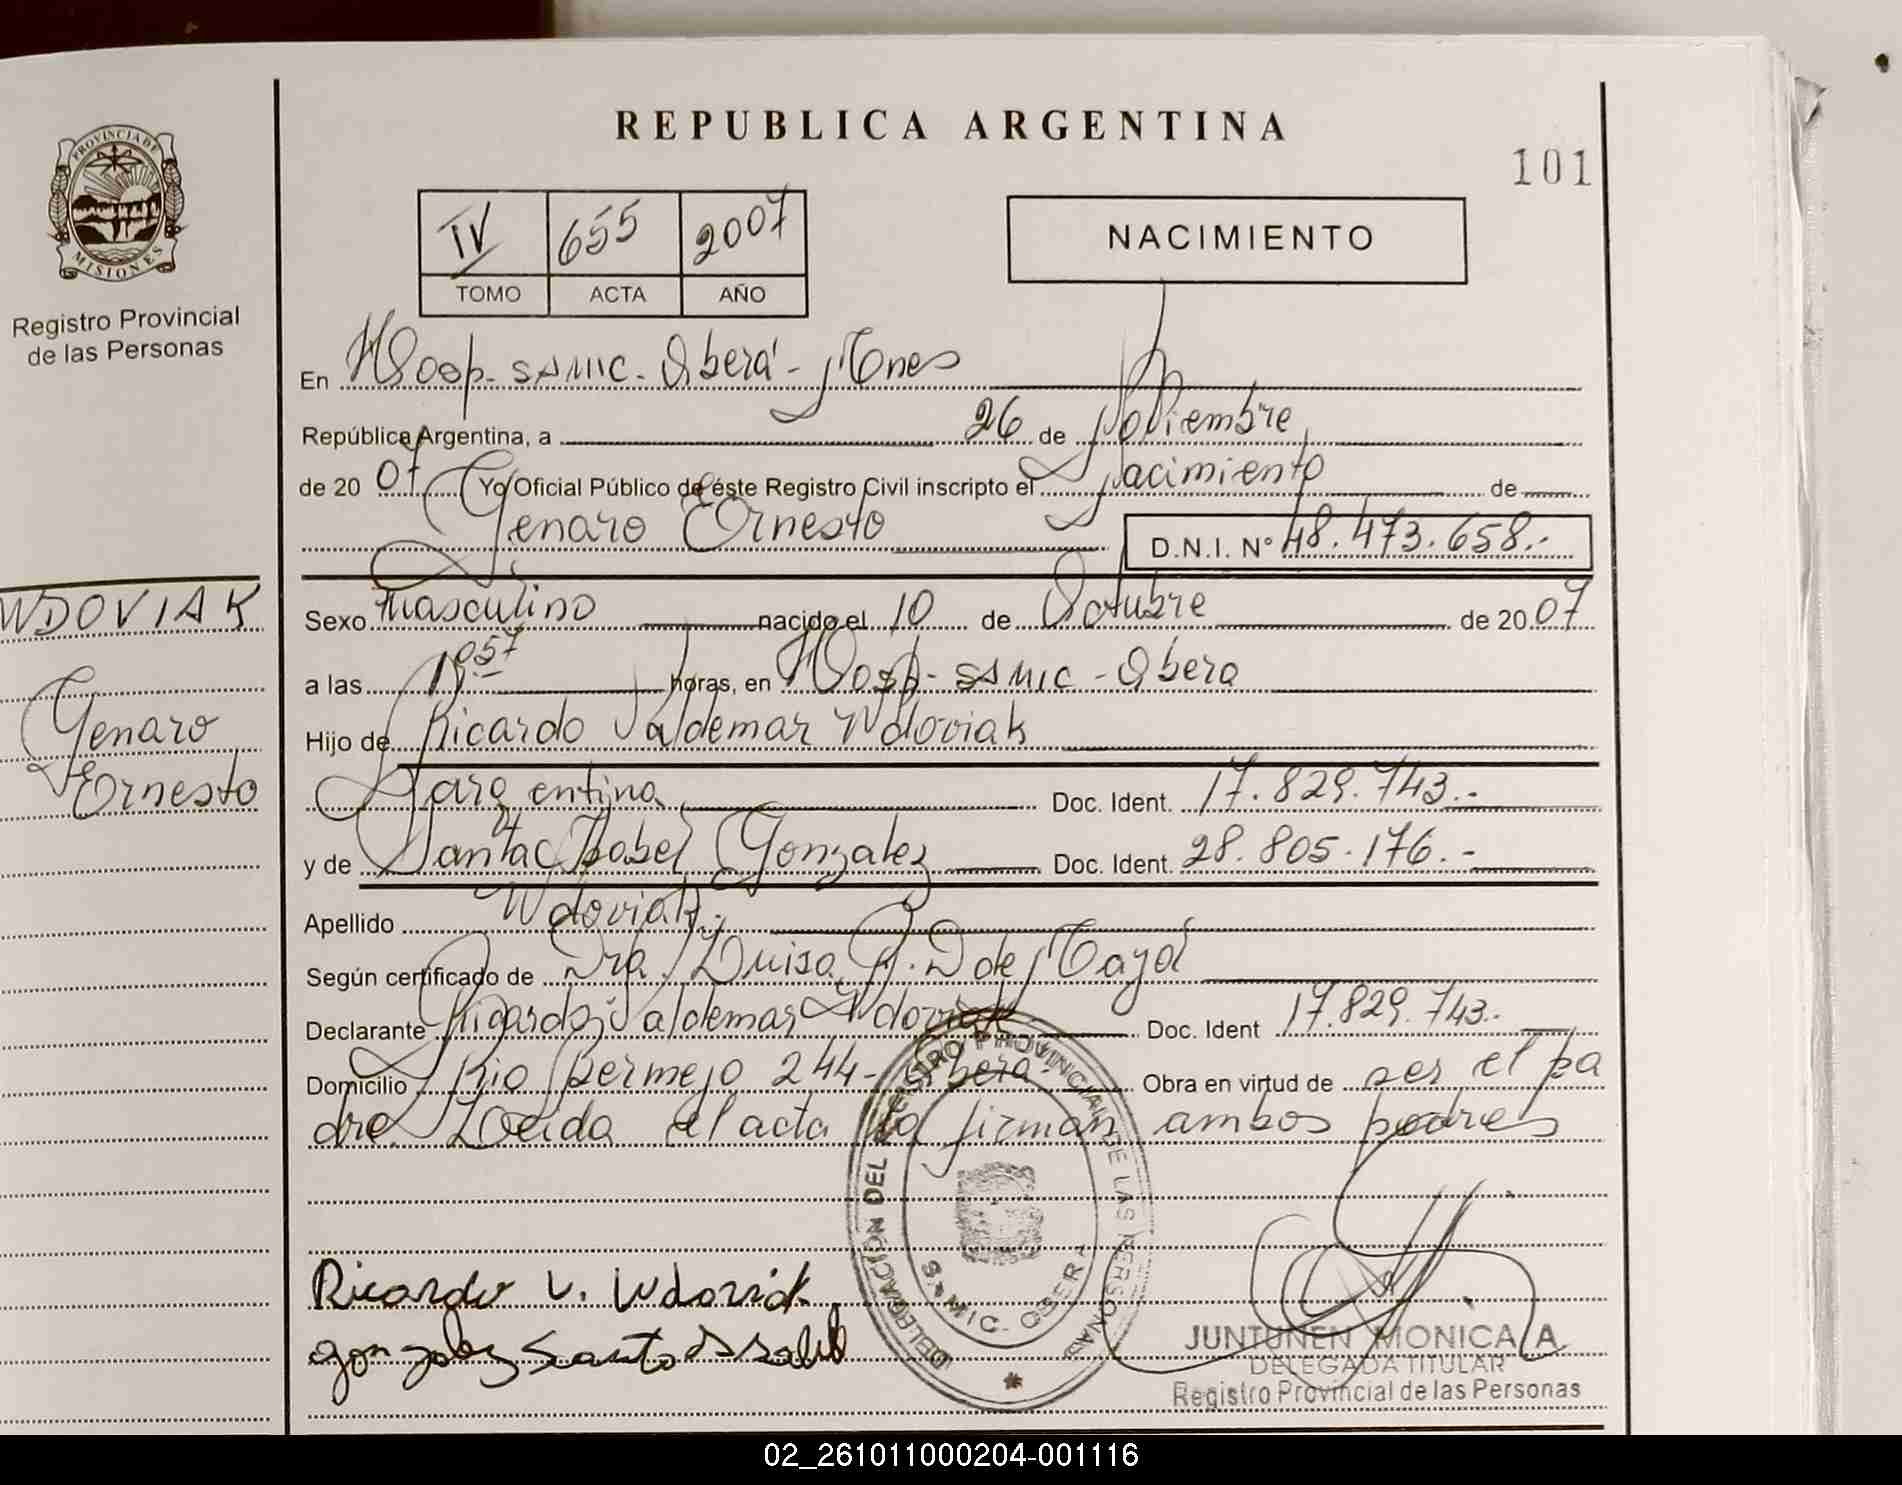 REPUBLICA ARGENTINA
101
PROVINCIA DE
MISIONES
Registro Provincial
de las Personas
IV 655 2007
TOMO ACTA AÑO
NACIMIENTO
En Hosp. SAMIC. Oberá - Mnes
República Argentina, a 26 de Noviembre
de 2007 Yo Oficial Público de éste Registro Civil inscripto el Nacimiento de
Genaro Ernesto D.N.I. Nº 48.473.658.-
WDOVIAK
Genaro
Ernesto
Sexo Masculino nacido el 10 de Octubre de 2007
a las horas, en Hosp - SAMIC - Obera
Hijo de Ricardo Valdemar Wdoviak
argentina Doc. Ident. 17.829.743.-
y de Santa Isabel Gonzalez Doc. Ident. 28.805.176.-
Apellido Wdoviak.
Según certificado de Dra. Luisa de
Declarante Ricardo Valdemar Wdoviak Doc. Ident 17.829.743.-
Domicilio Rio Bermejo 244 - Obera. Obra en virtud de ser el pa
dre. Leida el acta la firman ambos padres
DELEGACIÓN DEL REGISTRO PROVINCIAL DE LAS PERSONAS
SAMIC - OBERA
Ricardo V. Wdoviak
gonzalez Santa Isabel
JUNTUNEN MONICA A
DELEGADA TITULAR
Registro Provincial de las Personas
02_261011000204-001116